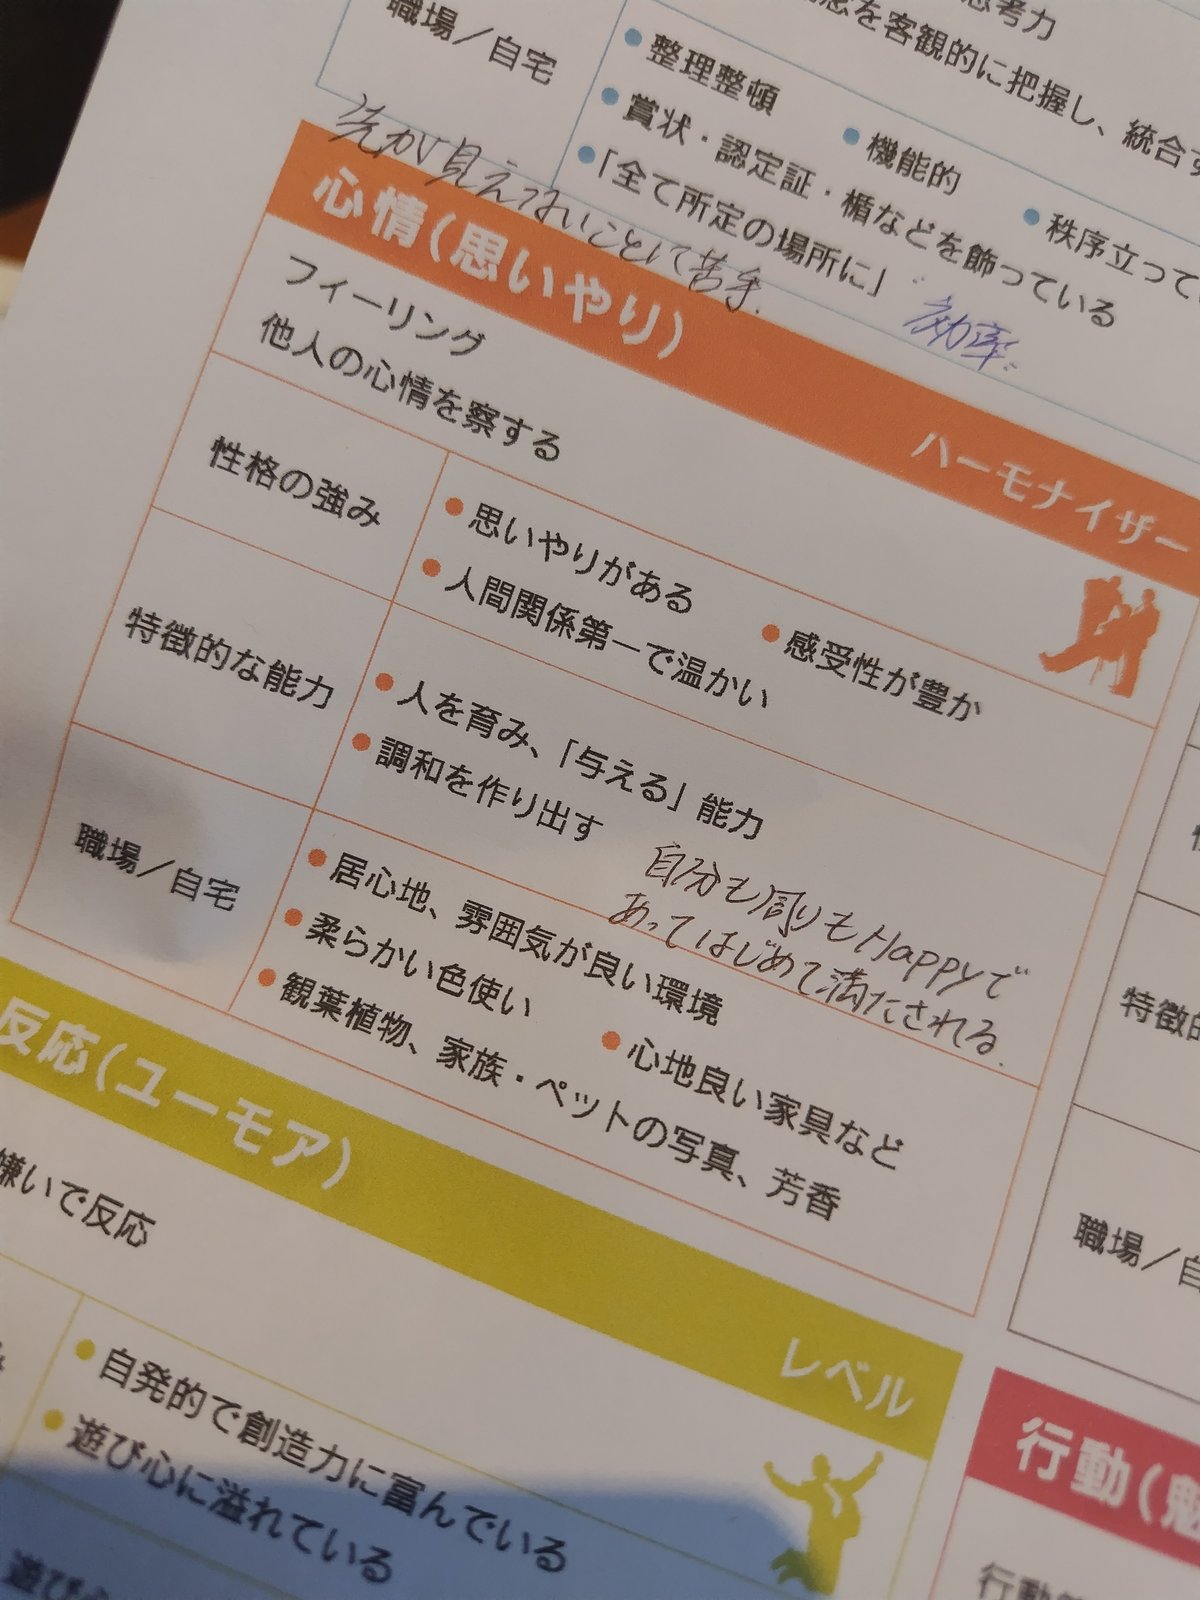 思考力
を客観的に把握し、統合す
職場／自宅
●整理整頓 ●機能的 ●秩序立って
●賞状・認定証・楯などを飾っている
●「全て所定の場所に」
効率
先が見えないことに苦手.
心情(思いやり) ハーモナイザー
フィーリング
他人の心情を察する
性格の強み
●思いやりがある ●感受性が豊か
●人間関係第一で温かい
特徴的な能力
●人を育み、「与える」能力
●調和を作り出す
自分も周りもHappyで
あってはじめて満たされる.
職場／自宅
●居心地、雰囲気が良い環境
●柔らかい色使い ●心地良い家具など
●観葉植物、家族・ペットの写真、芳香
反応(ユーモア) レベル
嫌いで反応
●自発的で創造力に富んでいる
●遊び心に溢れている
遊び
特徴的
職場／自
行動(魅
行動